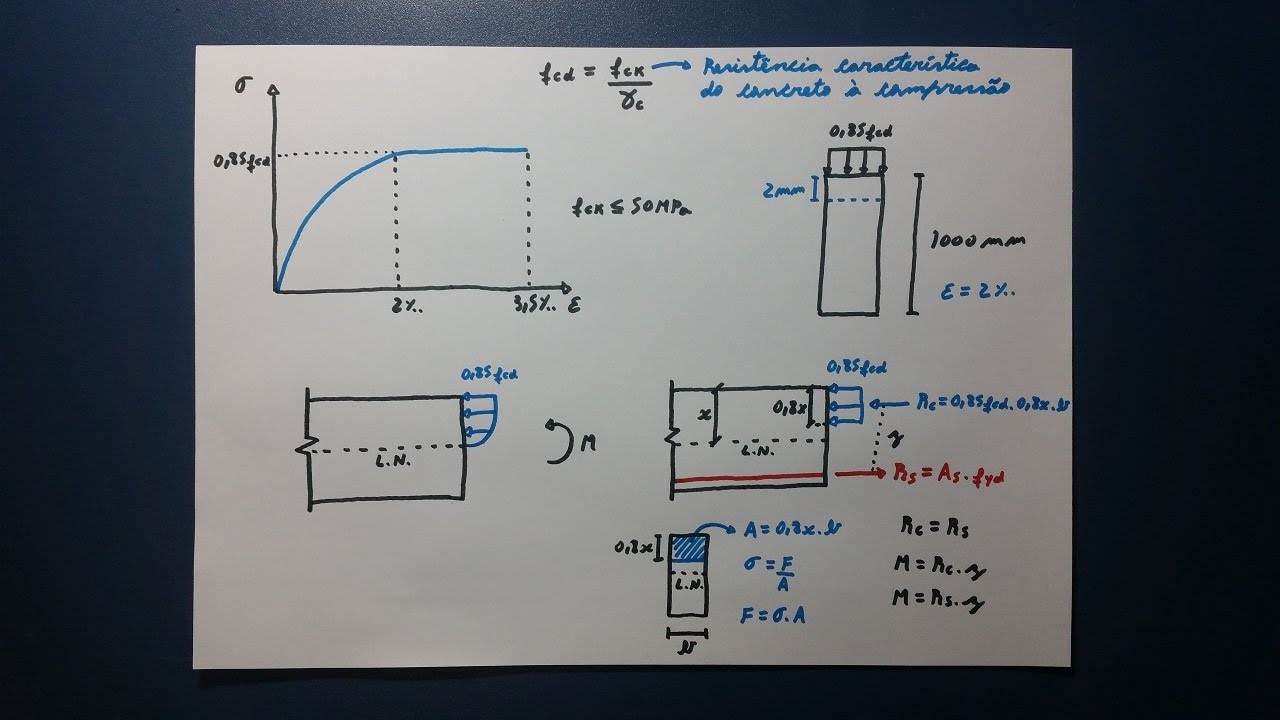 fcd = fck/γc → Resistência característica
do concreto à compressão
σ
0,85fcd
2‰
3,5‰
ε
fck ≤ 50MPa
0,85fcd
2mm
1000mm
ε = 2‰
0,85fcd
L.N.
M
0,85fcd
x
0,8x
L.N.
Rc = 0,85fcd . 0,8x . b
z
Rs = As . fyd
0,8x
L.N.
b
A = 0,8x . b
σ = F/A
F = σ . A
Rc = Rs
M = Rc . z
M = Rs . z